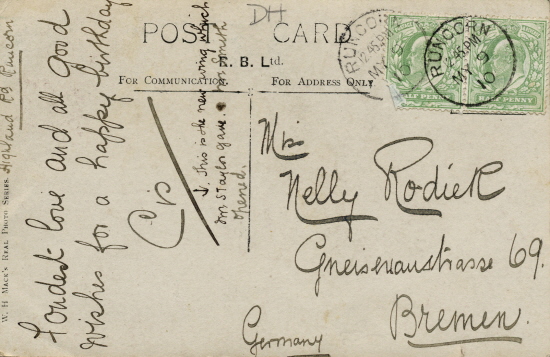 DH
POST CARD
R. B. Ltd.
FOR COMMUNICATION
FOR ADDRESS ONLY
RUNCORN
12.45 PM
MY 9
10
RUNCORN
12.45 PM
MY 9
10
HALF PENNY
HALF PENNY
W. H. MACK'S REAL PHOTO SERIES
Highland Rd Runcorn
Fondest love and all good
wishes for a happy birthday
Cis
This is the new wing which
Mr S Taylor gave
opened.
Miss
Nelly Rodiek
Gneisenaustrasse 69.
Bremen.
Germany